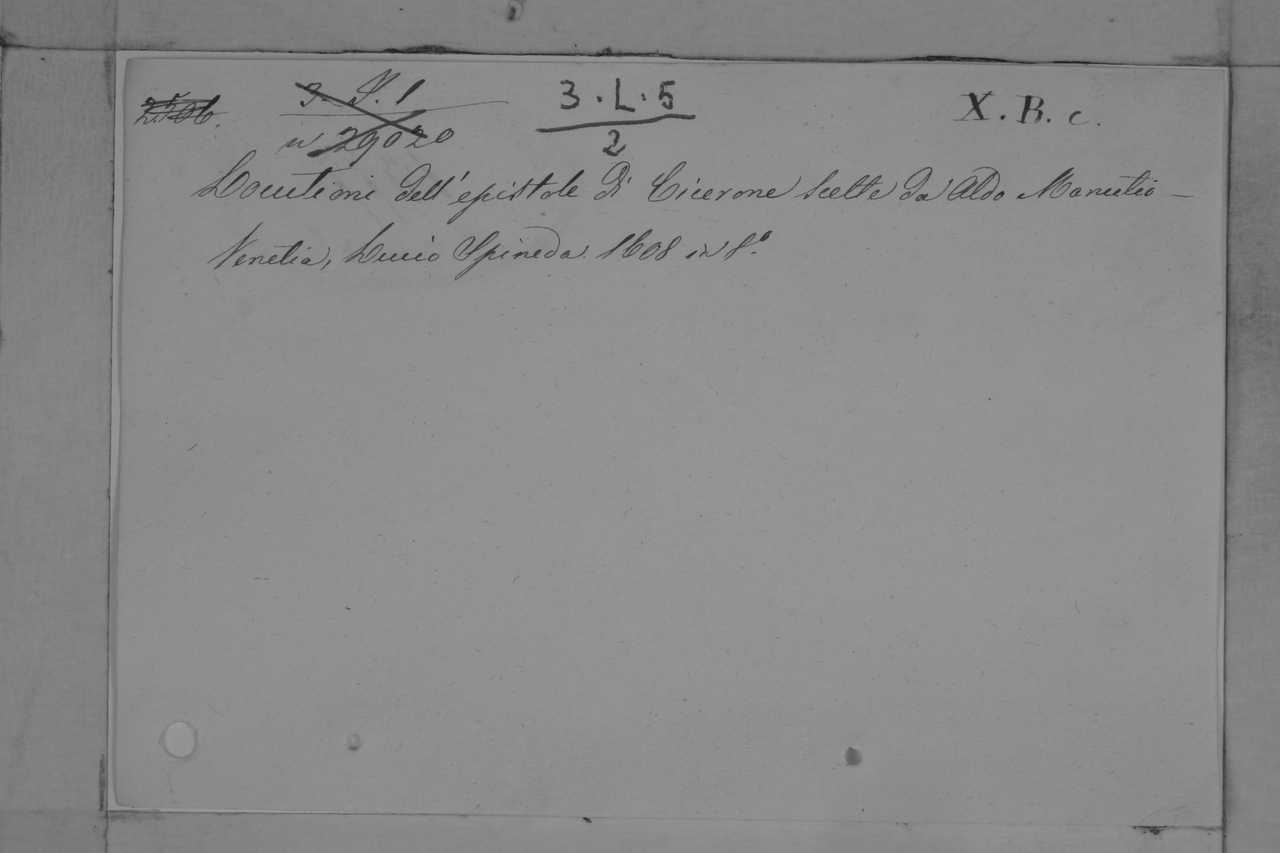 3. L. 5 X. B. c.
2
n 29020
Locutioni dell' epistole di Cicerone scelte da Aldo Manutio —
Venetia, Lucio Spineda. 1608 in 8.º